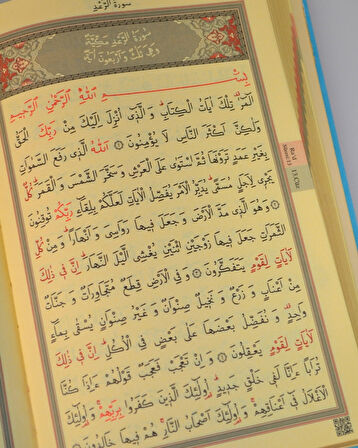 سورة الرعد
سورة الرعد مكية
وهي ثلث وأربعون آية
بِسْمِ اللهِ الرَّحْمٰنِ الرَّحِيمِ
الٓمٓرٰ تِلْكَ اٰيَاتُ الْكِتَابِ وَالَّذِى اُنْزِلَ اِلَيْكَ مِنْ رَبِّكَ الْحَقُّ
وَلٰكِنَّ اَكْثَرَ النَّاسِ لَا يُؤْمِنُونَ ۝ اَللهُ الَّذِى رَفَعَ السَّمٰوَاتِ
بِغَيْرِ عَمَدٍ تَرَوْنَهَا ثُمَّ اسْتَوٰى عَلَى الْعَرْشِ وَسَخَّرَ الشَّمْسَ وَالْقَمَرَ كُلٌّ
يَجْرِى لِاَجَلٍ مُسَمًّى يُدَبِّرُ الْاَمْرَ يُفَصِّلُ الْاٰيَاتِ لَعَلَّكُمْ بِلِقَاءِ رَبِّكُمْ تُوقِنُونَ
۝ وَهُوَ الَّذِى مَدَّ الْاَرْضَ وَجَعَلَ فِيهَا رَوَاسِىَ وَاَنْهَارًا وَمِنْ كُلِّ
الثَّمَرَاتِ جَعَلَ فِيهَا زَوْجَيْنِ اثْنَيْنِ يُغْشِى الَّيْلَ النَّهَارَ اِنَّ فِى ذٰلِكَ
لَاٰيَاتٍ لِقَوْمٍ يَتَفَكَّرُونَ ۝ وَفِى الْاَرْضِ قِطَعٌ مُتَجَاوِرَاتٌ وَجَنَّاتٌ
مِنْ اَعْنَابٍ وَزَرْعٌ وَنَخِيلٌ صِنْوَانٌ وَغَيْرُ صِنْوَانٍ يُسْقٰى بِمَاءٍ
وَاحِدٍ وَنُفَضِّلُ بَعْضَهَا عَلٰى بَعْضٍ فِى الْاُكُلِ اِنَّ فِى ذٰلِكَ
لَاٰيَاتٍ لِقَوْمٍ يَعْقِلُونَ ۝ وَاِنْ تَعْجَبْ فَعَجَبٌ قَوْلُهُمْ ءَاِذَا كُنَّا
تُرَابًا ءَاِنَّا لَفِى خَلْقٍ جَدِيدٍ اُولٰئِكَ الَّذِينَ كَفَرُوا بِرَبِّهِمْ وَاُولٰئِكَ
الْاَغْلَالُ فِى اَعْنَاقِهِمْ وَاُولٰئِكَ اَصْحَابُ النَّارِ هُمْ فِيهَا خَالِدُونَ
Ra'd
13.Cüz